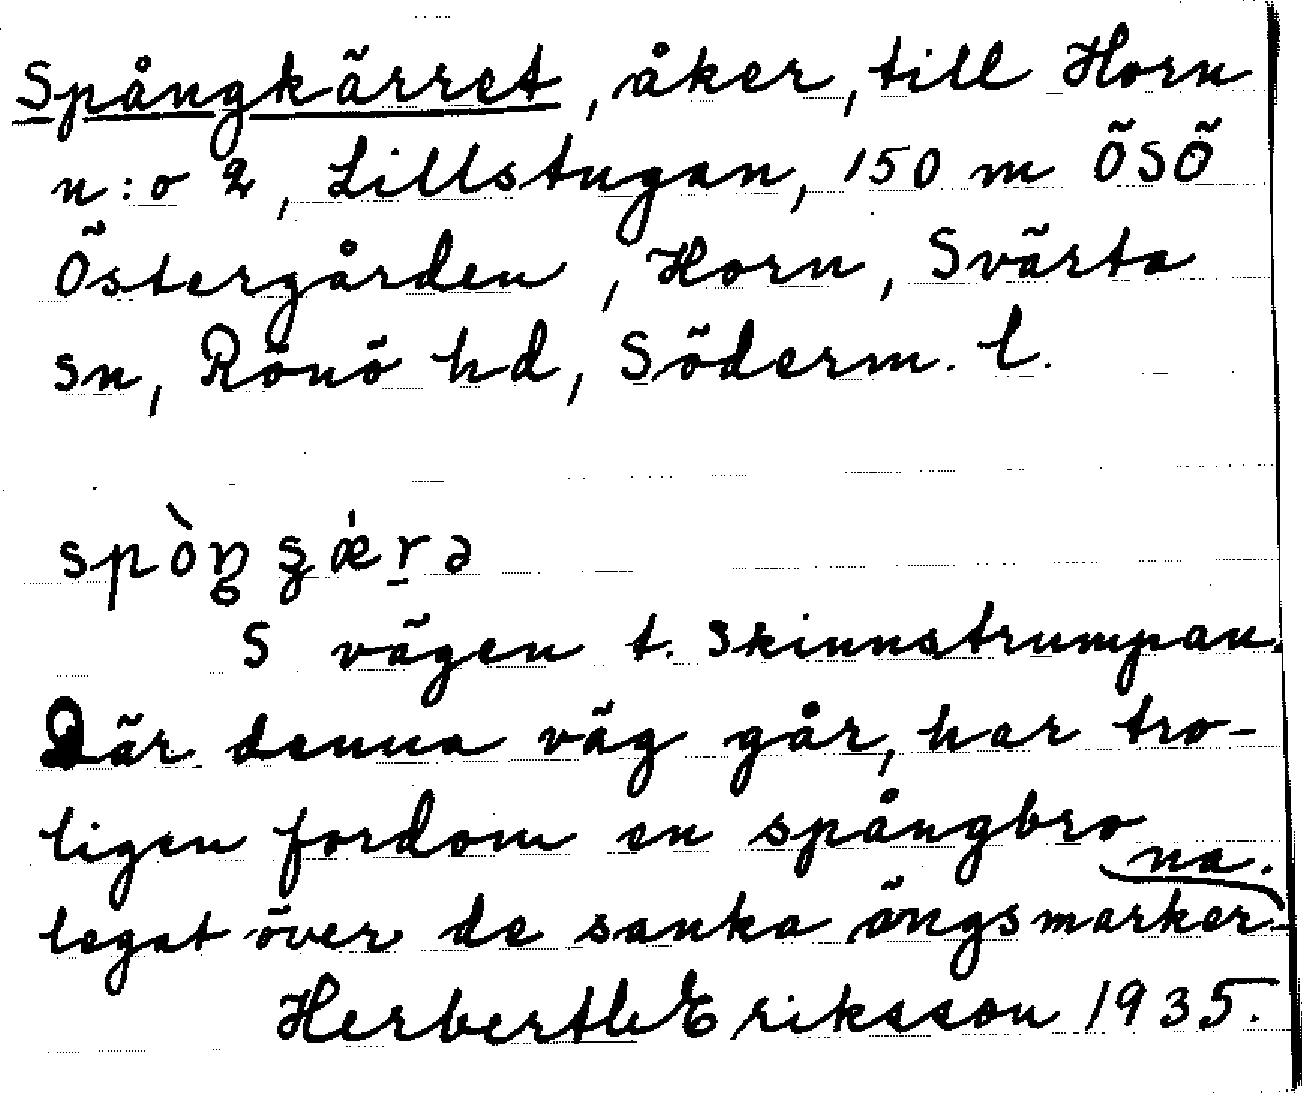 Spångkärret, åker, till Horn
n:o 2, Lillstugan, 150 m ÖSÖ
Östergården, Horn, Svärta
sn, Rönö hd, Söderm. l.
S vägen t. Skinnstrumpan.
Där denna väg går, har tro-
ligen fordom en spångbro
legat över de sanka ängsmarker-
na.
Eriksson 1935.